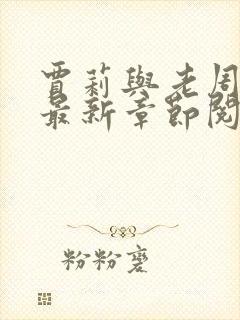 賈莉與老周
最新章節閱
粉粉裘